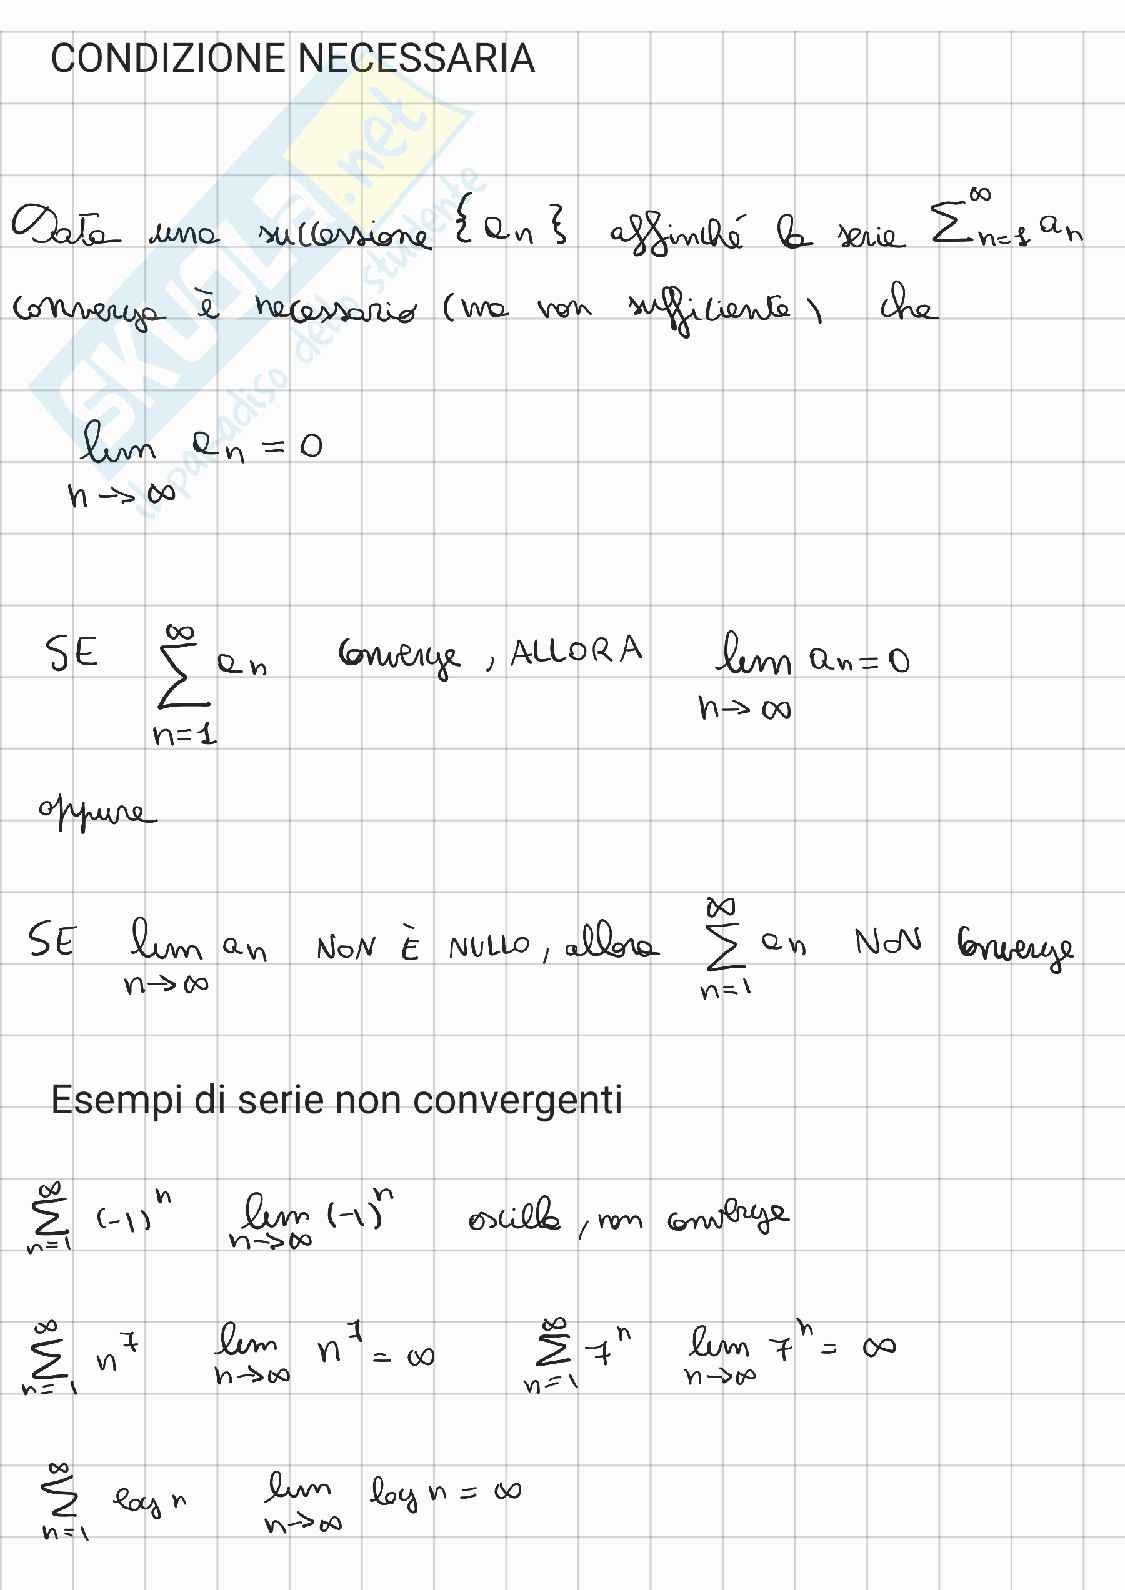 CONDIZIONE NECESSARIA
SKUOLA.net
il paradiso dello studente
Data una successione {an} affinché la serie ∑_{n=1}^{∞} an
converga è necessario (ma non sufficiente) che
lim an = 0
n→∞
SE ∑_{n=1}^{∞} an converge, ALLORA lim_{n→∞} an = 0
oppure
SE lim_{n→∞} an NON È NULLO, allora ∑_{n=1}^{∞} an NON converge
Esempi di serie non convergenti
∑_{n=1}^{∞} (-1)^n lim_{n→∞} (-1)^n oscilla, non converge
∑_{n=1}^{∞} n^7 lim_{n→∞} n^7 = ∞ ∑_{n=1}^{∞} 7^n lim_{n→∞} 7^n = ∞
∑_{n=1}^{∞} log n lim_{n→∞} log n = ∞